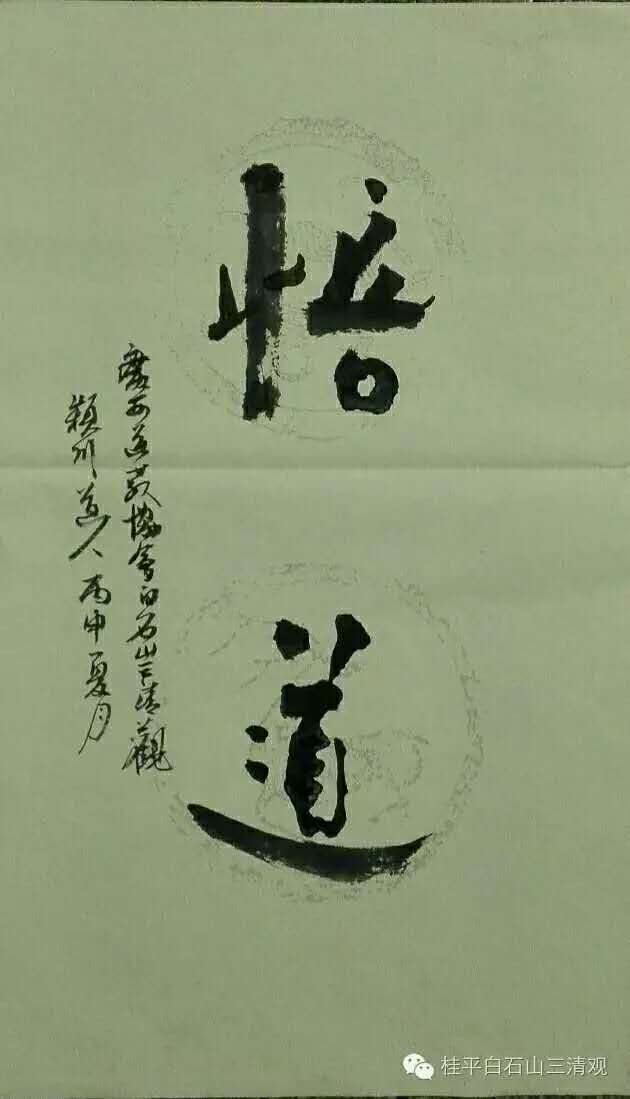 悟道
廣西道教協會白石山三清觀
潁川道人 丙申夏月
桂平白石山三清观